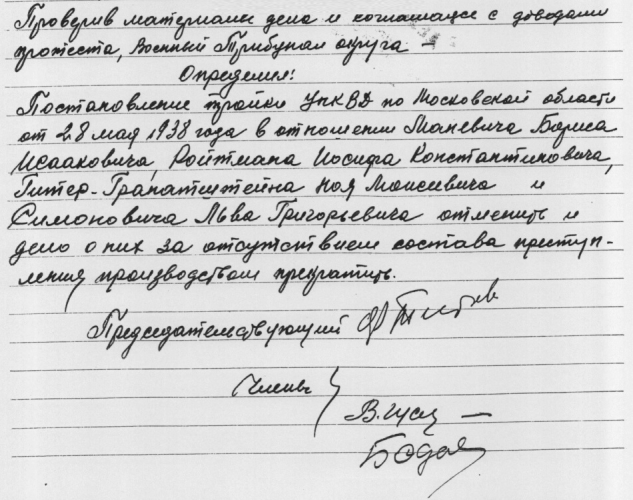 Проверив материалы дела и соглашаясь с доводами
протеста, Военный Трибунал округа –
Определил:
Постановление тройки УНКВД по Московской области
от 28 мая 1938 года в отношении Маневича Бориса
Исааковича, Ройтмана Иосифа Константиновича,
Гитер-Гранатштейна Ноя Моисеевича и
Симоновича Льва Григорьевича отменить и
дело о них за отсутствием состава преступ-
ления производством прекратить.
Председательствующий
Члены